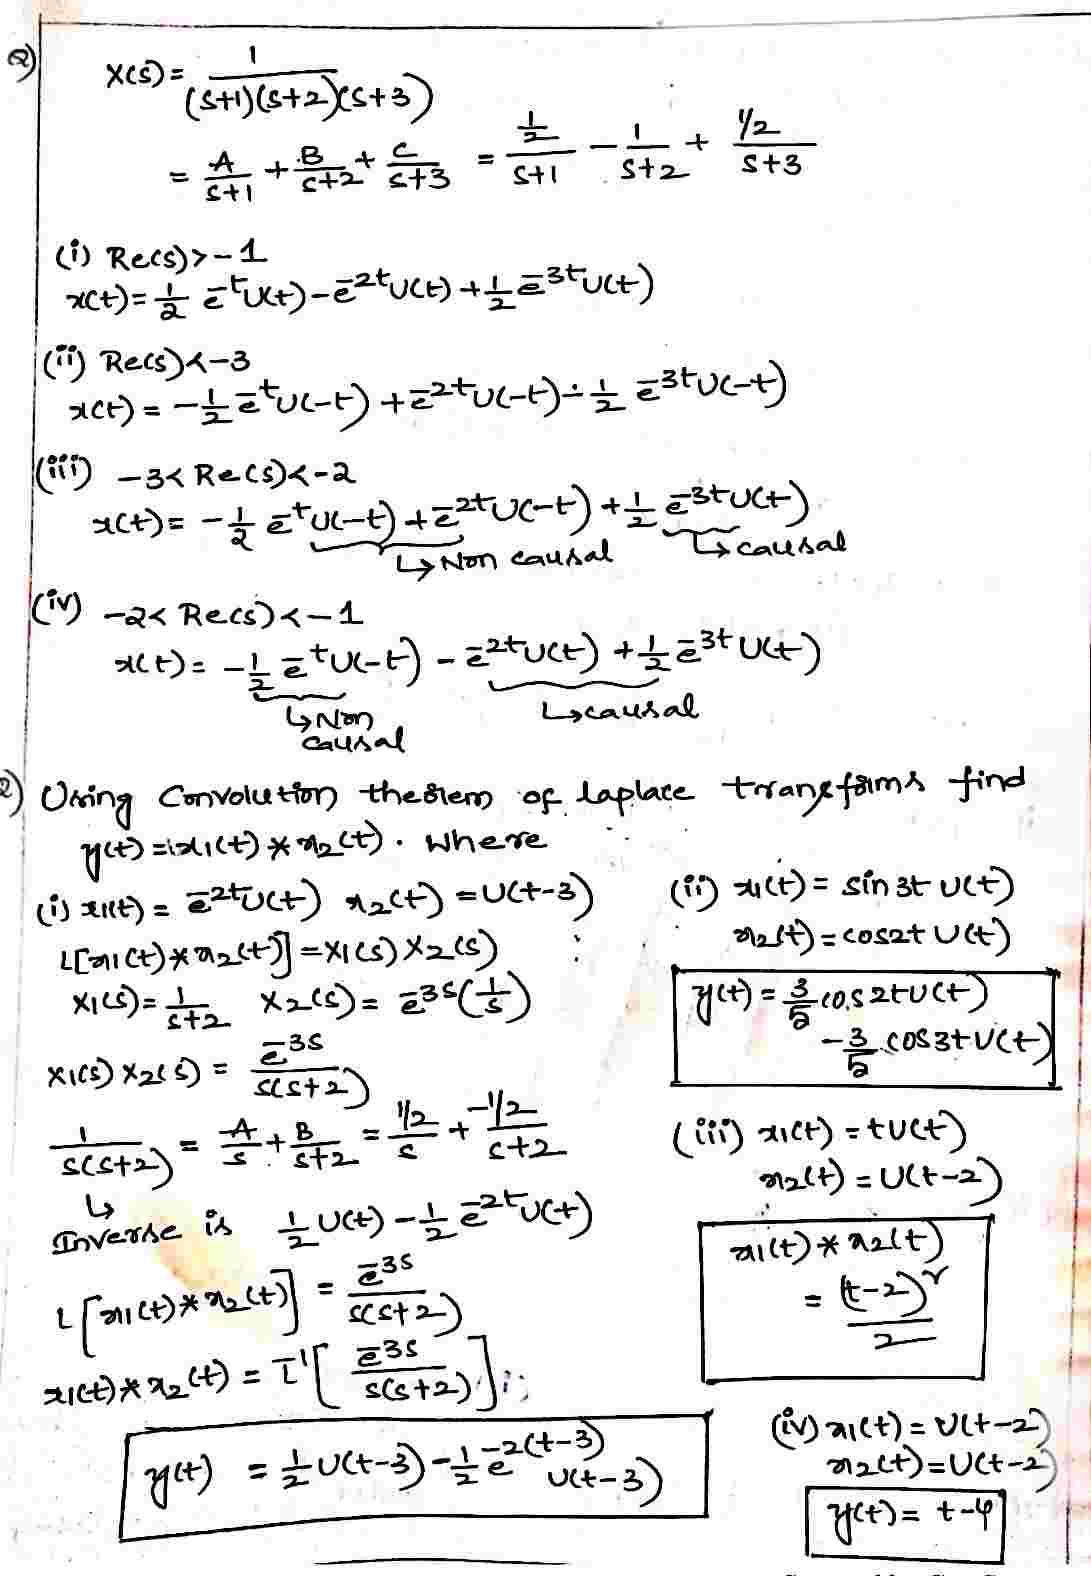 2)
X(s) = 1/((s+1)(s+2)(s+3))
= A/(s+1) + B/(s+2) + C/(s+3) = (1/2)/(s+1) - 1/(s+2) + (1/2)/(s+3)
(i) Re(s) > -1
x(t) = 1/2 e^-t u(t) - e^-2t u(t) + 1/2 e^-3t u(t)
(ii) Re(s) < -3
x(t) = -1/2 e^-t u(-t) + e^-2t u(-t) - 1/2 e^-3t u(-t)
(iii) -3 < Re(s) < -2
x(t) = -1/2 e^-t u(-t) + e^-2t u(-t) + 1/2 e^-3t u(t)
↳ Non causal ↳ causal
(iv) -2 < Re(s) < -1
x(t) = -1/2 e^-t u(-t) - e^-2t u(t) + 1/2 e^-3t u(t)
↳ Non causal ↳ causal
2) Using Convolution theorem of laplace transforms find
y(t) = x1(t) * x2(t). where
(i) x1(t) = e^-2t u(t) x2(t) = u(t-3)
L[x1(t) * x2(t)] = X1(s) X2(s)
X1(s) = 1/(s+2) X2(s) = e^-3s (1/s)
X1(s) X2(s) = e^-3s/(s(s+2))
1/(s(s+2)) = A/s + B/(s+2) = (1/2)/s + (-1/2)/(s+2)
↳
Inverse is 1/2 u(t) - 1/2 e^-2t u(t)
L[x1(t) * x2(t)] = e^-3s/(s(s+2))
x1(t) * x2(t) = L^-1[e^-3s/(s(s+2))]
y(t) = 1/2 u(t-3) - 1/2 e^-2(t-3) u(t-3)
(ii) x1(t) = sin 3t u(t)
x2(t) = cos2t u(t)
y(t) = 3/5 cos2t u(t)
- 3/5 cos3t u(t)
(iii) x1(t) = t u(t)
x2(t) = u(t-2)
x1(t) * x2(t)
= (t-2)^2/2
(iv) x1(t) = u(t-2)
x2(t) = u(t-2)
y(t) = t-4